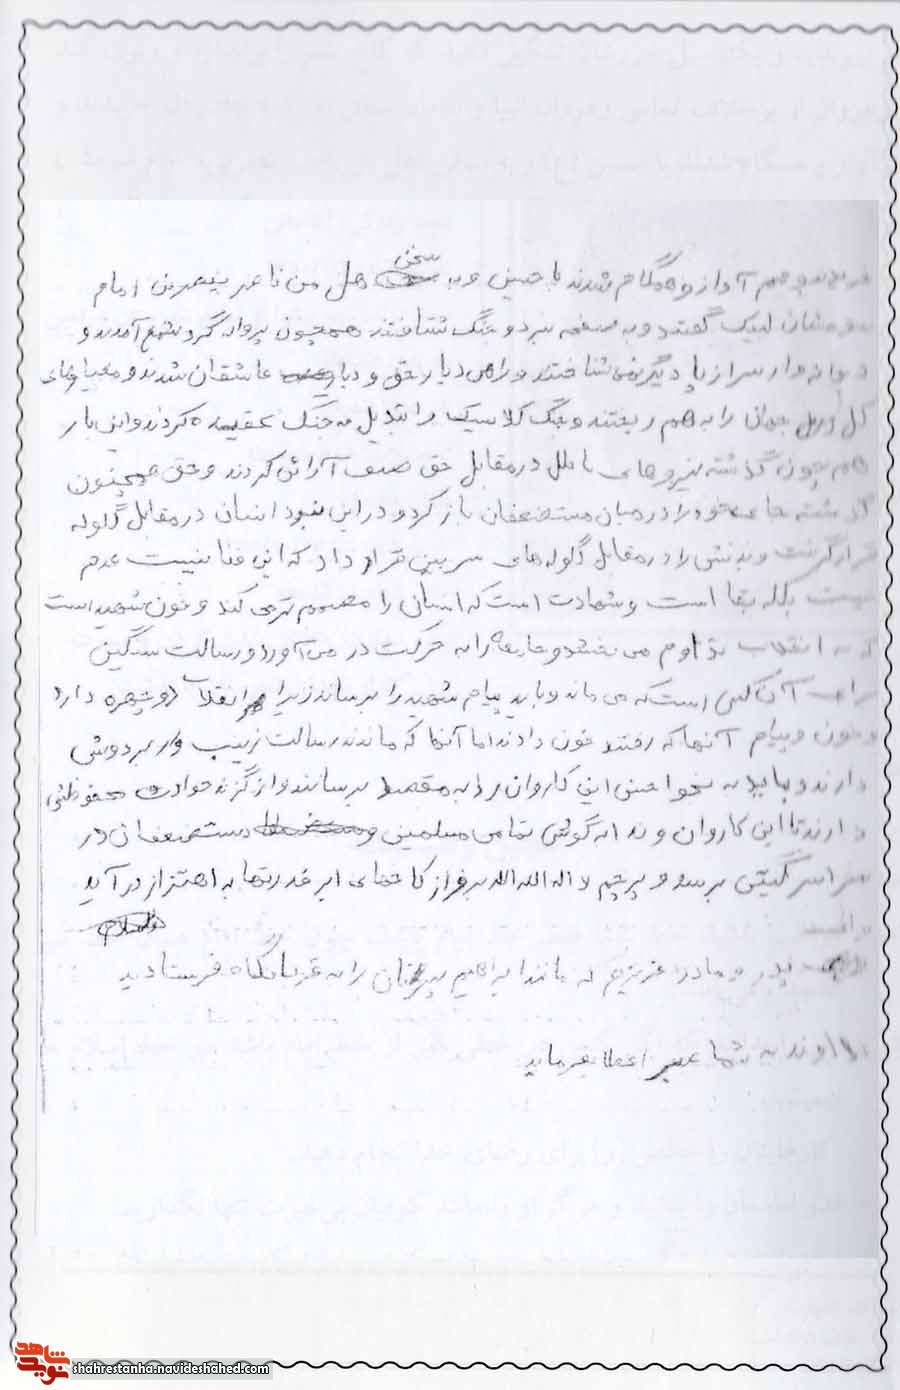 هم آواز و همگام شدند با حسین و به سخن هل من ناصر ینصرنی امام
لبیک گفتند و به صحنه نبرد و جنگ شتافتند همچون پروانه گرد شمع آمدند و
دیوانه وار سر از پا دیگر نمی شناختند و راهی دیار حق و دیار عاشقان شدند و معیارهای
جهان را به هم ریختند و جنگ کلاسیک را تبدیل به جنگ عقیده کردند و این بار
هم چون گذشته نیروهای باطل در مقابل حق صف آرائی کردند و حق همچنون
گذشته جای خود را در میان مستضعفان باز کرد و در این نبرد انسان در مقابل گلوله
قرار گرفت و بدنش را در مقابل گلوله های سربین قرار داد که این فنا نیست عدم
نیست بلکه بقا است و شهادت است که انسان را مصمم تر می کند و خون شهید است
که به انقلاب تداوم می بخشد و جامعه را به حرکت در می آورد و رسالت سنگین
برای آن کس است که می ماند و باید پیام شهید را برساند زیرا هر انقلاب دو چهره دارد
خون و پیام آنها که رفتند خون دادند اما آنها که ماندند رسالت زینب وار بر دوش
دارند و باید به نحو احسن این کاروان را به مقصد برسانند و از گزند حوادث محفوظش
دارند تا این کاروان و ندا به گوش تمامی مسلمین و مستضعفان در
سراسر گیتی برسد و پرچم لا اله الا الله بر فراز کاخهای ابر قدرتها به اهتزاز در آید
پدر و مادر عزیزم که مانند ابراهیم پسرتان را به قربانگاه فرستادید
خداوند به شما صبر اعطا بفرماید
نوید شاهد
shahrestanha.navideshahed.com